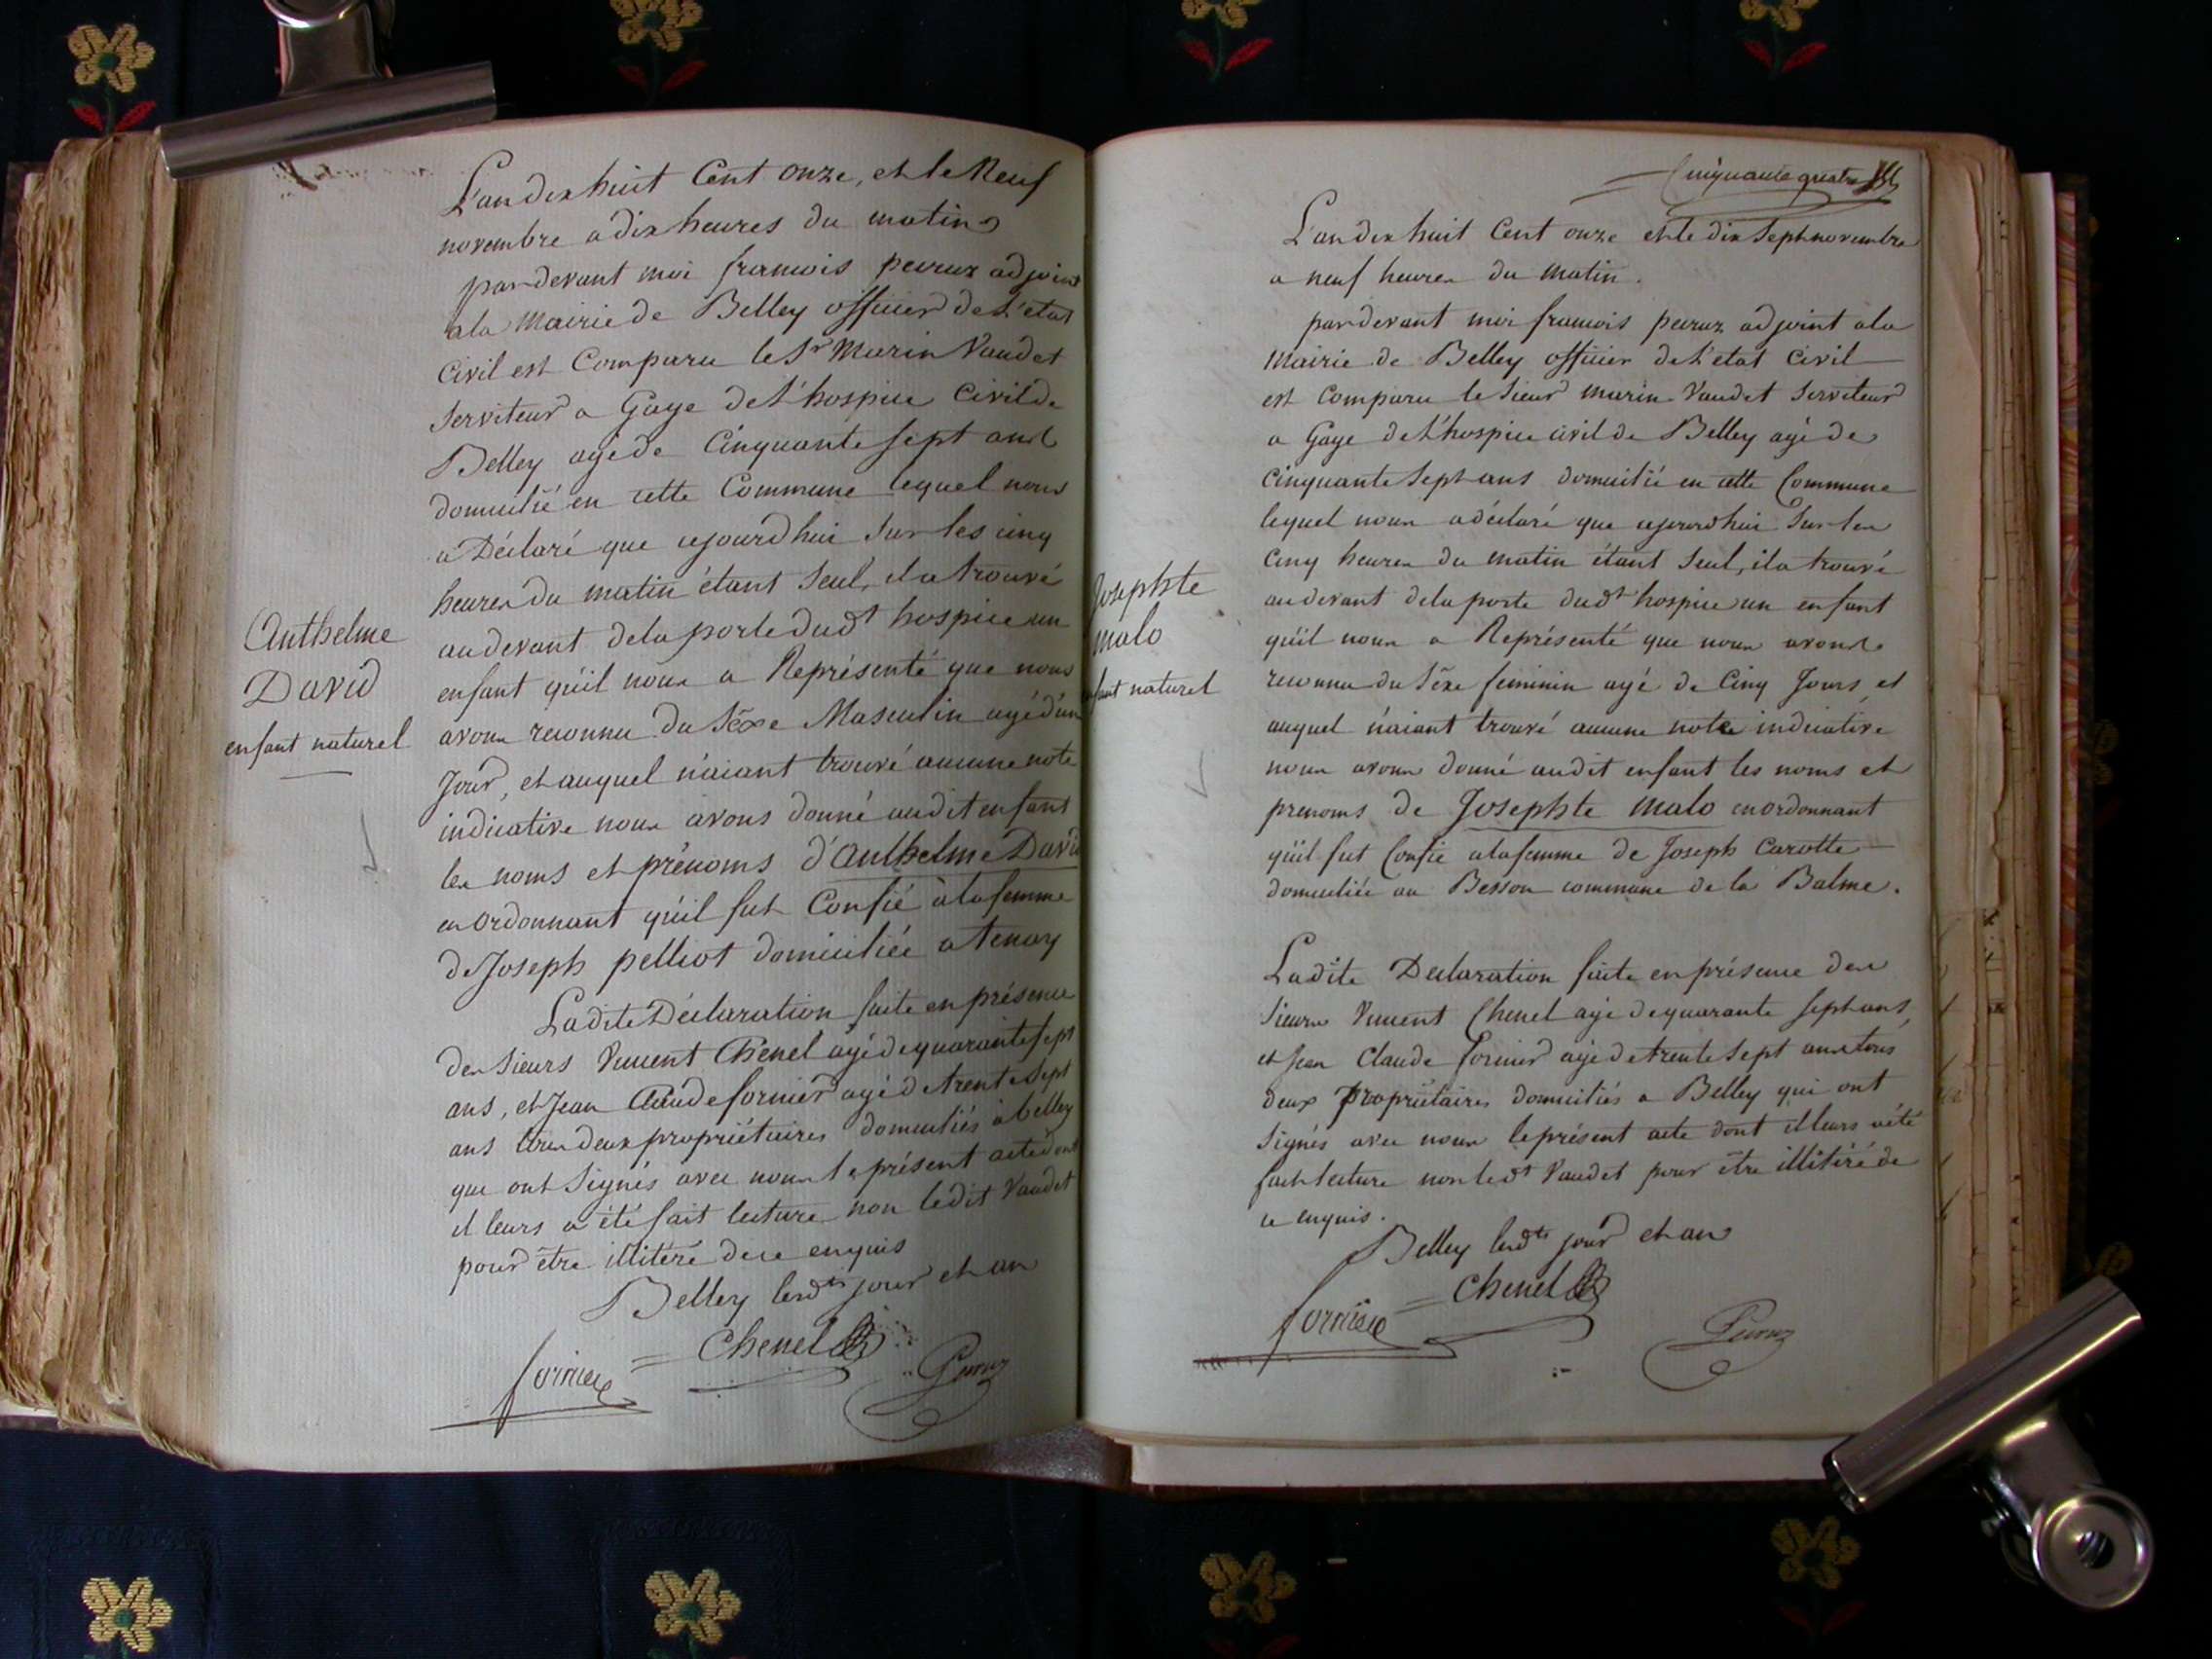 L'an dix huit Cent onze, et le Neuf
novembre a dix heures du matin
pardevant moi francois peyruz adjoint
a la Mairie de Belley officier de L'etat
Civil est Comparu le Sr Marin Vaudet
Serviteur a Gage de L'hospice Civil de
Belley agé de Cinquante Sept ans
domicilié en cette Commune lequel nous
a Déclaré que cejourd'hui Sur les cinq
heures du matin étant Seul, il a trouvé
au devant de la porte dudt hospice un
enfant qu'il nous a Représenté que nous
avons reconnu du Sexe Masculin agé d'un
Jour, et auquel n'aiant trouvé aucune note
indicative nous avons donné audit enfant
les noms et prénoms d'Anthelme David
en ordonnant qu'il fut Confié à la femme
de Joseph pelliot domiciliée a tenay
Ladite Déclaration faite en présence
des Sieurs Vincent Chenel agé de quarante sept
ans, et Jean Claude fornier agé de trente Sept
ans tous deux propriétaires domiciliés à belley
que ont Signés avec nous le présent acte dont
il leurs a été fait lecture non ledit Vaudet
pour être illitéré de ce enquis
Belley lesdts jour et an
fornier
Chenel
Peyruz
Anthelme
David
enfant naturel
Cinquante quatre
L'an dix huit Cent onze et le dix Sept novembre
a neuf heures du Matin.
pardevant moi francois peyruz adjoint a la
Mairie de Belley officier de L'etat Civil
est Comparu le Sieur marin Vaudet Serviteur
a Gage de L'hospice civil de Belley agé de
Cinquante Sept ans domicilié en cette Commune
lequel nous a déclaré que cejourd'hui Sur les
Cinq heures du matin étant Seul, il a trouvé
au devant de la porte dudt hospice un enfant
qu'il nous a Représenté que nous avons
reconnu du Sexe feminin agé de Cinq Jours et
auquel n'aiant trouvé aucune note indicative
nous avons donné audit enfant les noms et
prenoms de Josephte Malo en ordonnant
qu'il fut Confié a la femme de Joseph Carotte
domiciliée au Besson commune de la Balme.
Ladite Declaration faite en présence des
Sieurs Vincent Chenel agé de quarante sept ans,
et Jean Claude fornier agé de trente Sept ans tous
deux propriétaires domiciliés a Belley qui ont
Signés avec nous le présent acte dont il leurs a été
fait lecture non ledt Vaudet pour être illitéré de
ce enquis.
Belley lesdts jour et an
fornier
Chenel
Peyruz
Josephte
Malo
enfant naturel